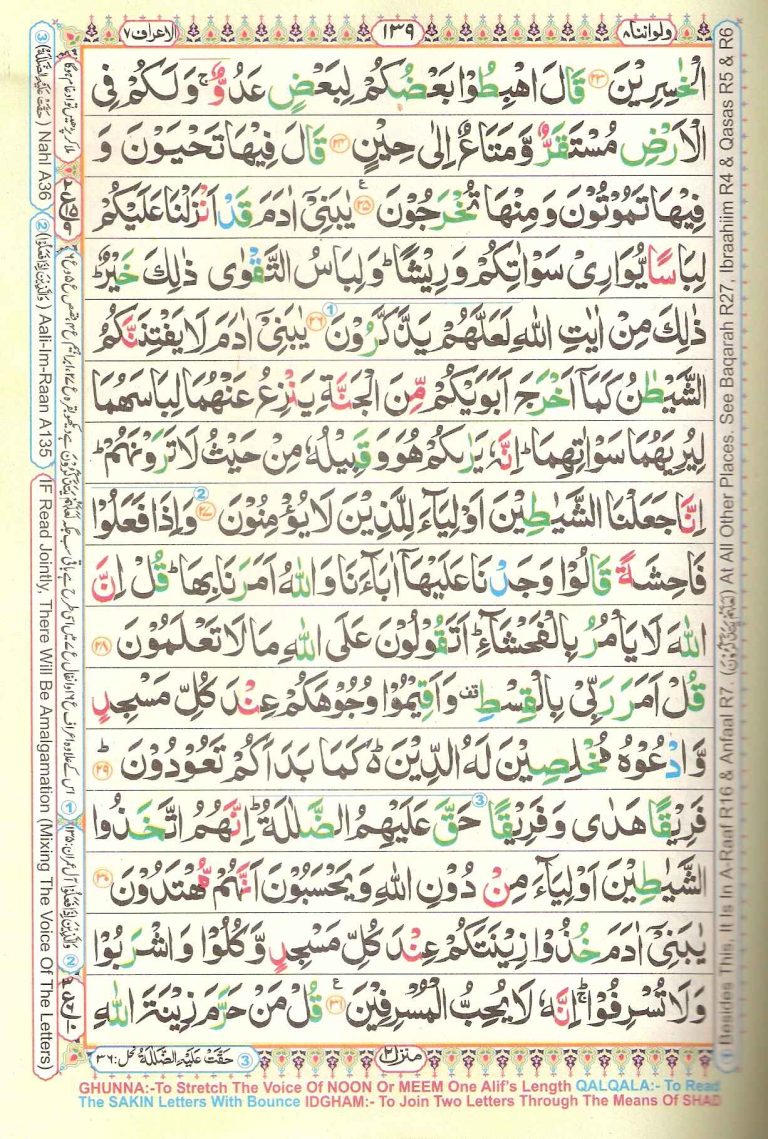 ولواننا ۸
۱۳۹
الاعراف ۷
الْخٰسِرِيْنَ ﴿۲۳﴾ قَالَ اهْبِطُوْا بَعْضُكُمْ لِبَعْضٍ عَدُوٌّ ۚ وَلَكُمْ فِى
الْاَرْضِ مُسْتَقَرٌّ وَّمَتَاعٌ اِلٰى حِيْنٍ ﴿۲۴﴾ قَالَ فِيْهَا تَحْيَوْنَ وَ
فِيْهَا تَمُوْتُوْنَ وَمِنْهَا تُخْرَجُوْنَ ﴿۲۵﴾ ع يٰبَنِىْٓ اٰدَمَ قَدْ اَنْزَلْنَا عَلَيْكُمْ
لِبَاسًا يُّوَارِىْ سَوْاٰتِكُمْ وَرِيْشًا ؕ وَلِبَاسُ التَّقْوٰى ذٰلِكَ خَيْرٌ ؕ
ذٰلِكَ مِنْ اٰيٰتِ اللّٰهِ لَعَلَّهُمْ يَذَّكَّرُوْنَ ﴿۲۶﴾ ① يٰبَنِىْٓ اٰدَمَ لَا يَفْتِنَنَّكُمُ
الشَّيْطٰنُ كَمَآ اَخْرَجَ اَبَوَيْكُمْ مِّنَ الْجَنَّةِ يَنْزِعُ عَنْهُمَا لِبَاسَهُمَا
لِيُرِيَهُمَا سَوْاٰتِهِمَا ؕ اِنَّهٗ يَرٰىكُمْ هُوَ وَقَبِيْلُهٗ مِنْ حَيْثُ لَا تَرَوْنَهُمْ ؕ
اِنَّا جَعَلْنَا الشَّيٰطِيْنَ اَوْلِيَآءَ لِلَّذِيْنَ لَا يُؤْمِنُوْنَ ﴿۲۷﴾ ② وَاِذَا فَعَلُوْا
فَاحِشَةً قَالُوْا وَجَدْنَا عَلَيْهَآ اٰبَآءَنَا وَاللّٰهُ اَمَرَنَا بِهَا ؕ قُلْ اِنَّ
اللّٰهَ لَا يَاْمُرُ بِالْفَحْشَآءِ ؕ اَتَقُوْلُوْنَ عَلَى اللّٰهِ مَا لَا تَعْلَمُوْنَ ﴿۲۸﴾
قُلْ اَمَرَ رَبِّىْ بِالْقِسْطِ ۟ وَاَقِيْمُوْا وُجُوْهَكُمْ عِنْدَ كُلِّ مَسْجِدٍ
وَّادْعُوْهُ مُخْلِصِيْنَ لَهُ الدِّيْنَ ۬ؕ كَمَا بَدَاَكُمْ تَعُوْدُوْنَ ﴿۲۹﴾ؕ
فَرِيْقًا هَدٰى وَفَرِيْقًا ③ حَقَّ عَلَيْهِمُ الضَّلٰلَةُ ؕ اِنَّهُمُ اتَّخَذُوا
الشَّيٰطِيْنَ اَوْلِيَآءَ مِنْ دُوْنِ اللّٰهِ وَيَحْسَبُوْنَ اَنَّهُمْ مُّهْتَدُوْنَ ﴿۳۰﴾
يٰبَنِىْٓ اٰدَمَ خُذُوْا زِيْنَتَكُمْ عِنْدَ كُلِّ مَسْجِدٍ وَّكُلُوْا وَاشْرَبُوْا
وَلَا تُسْرِفُوْا ۚ اِنَّهٗ لَا يُحِبُّ الْمُسْرِفِيْنَ ﴿۳۱﴾ ع قُلْ مَنْ حَرَّمَ زِيْنَةَ اللّٰهِ
منزل ۲
③ حَقَّتْ عَلَيْهِ الضَّلٰلَةُ نحل: ۳۶
① Besides This, It Is In A-Raaf R16 & Anfaal R7. (لَعَلَّهُمْ يَتَذَكَّرُوْنَ) At All Other Places. See Baqarah R27, Ibraahiim R4 & Qasas R5 & R6
③ (حَقَّتْ عَلَيْهِ الضَّلٰلَةُ) Nahl A36
② (وَالَّذِيْنَ اِذَا فَعَلُوْا) Aali-Im-Raan A135
(IF Read Jointly, There Will Be Amalgamation (Mixing The Voice Of The Letters)
② وَالَّذِيْنَ اِذَا فَعَلُوْا آل عمران: ۱۳۵
GHUNNA:-To Stretch The Voice Of NOON Or MEEM One Alif's Length QALQALA:- To Read
The SAKIN Letters With Bounce IDGHAM:- To Join Two Letters Through The Means Of SHAD